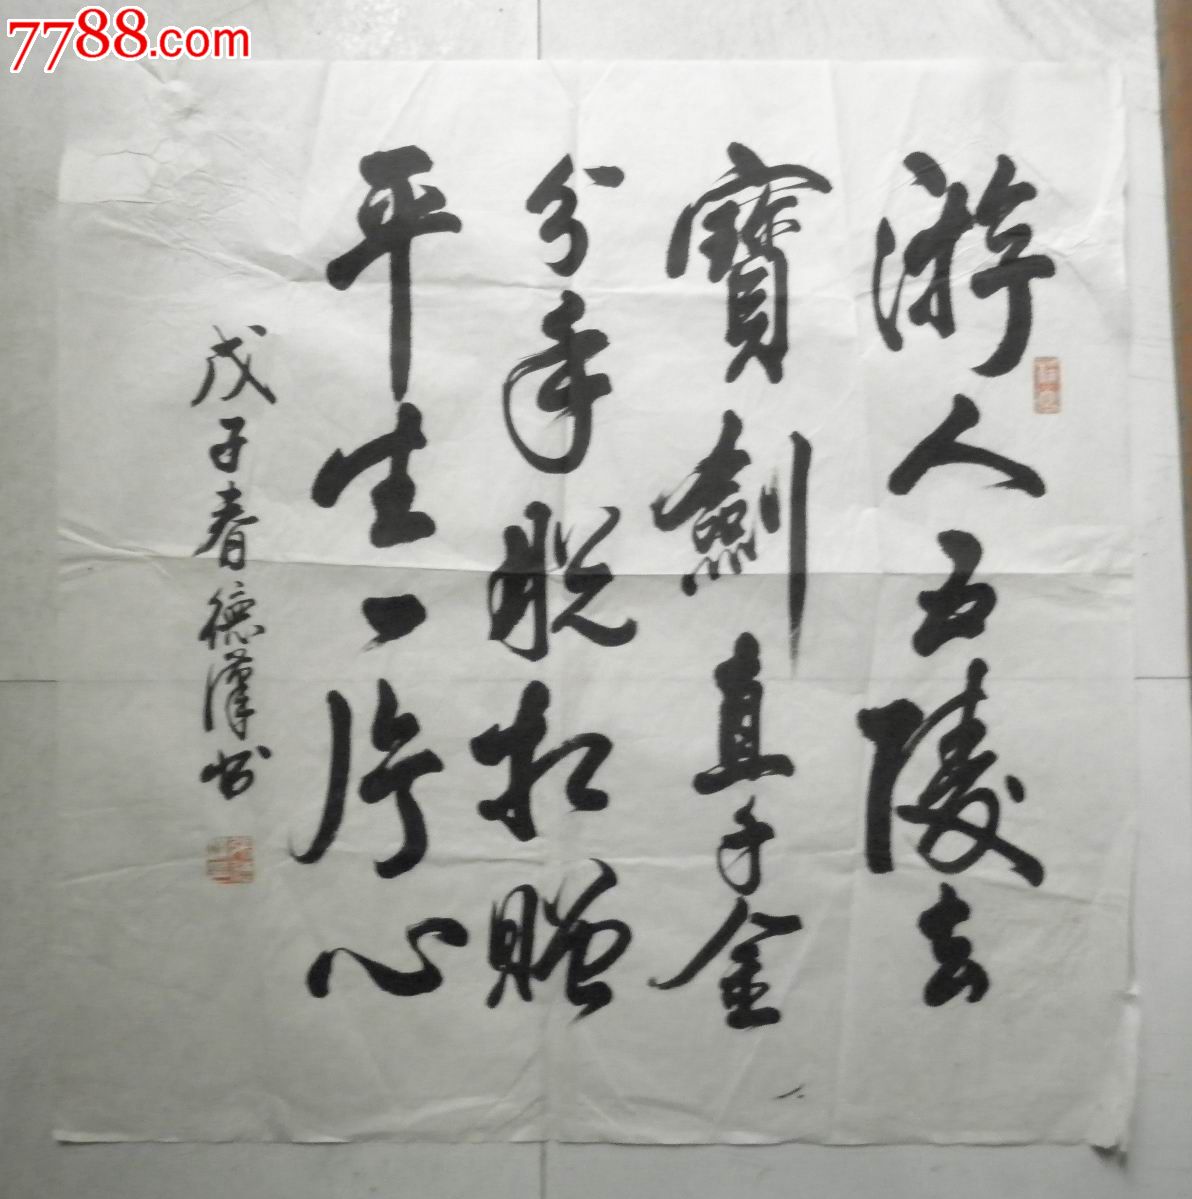 7788.com
游人五陵去
寳劍直千金
分手脱相贈
平生一片心
戊子春德漢书